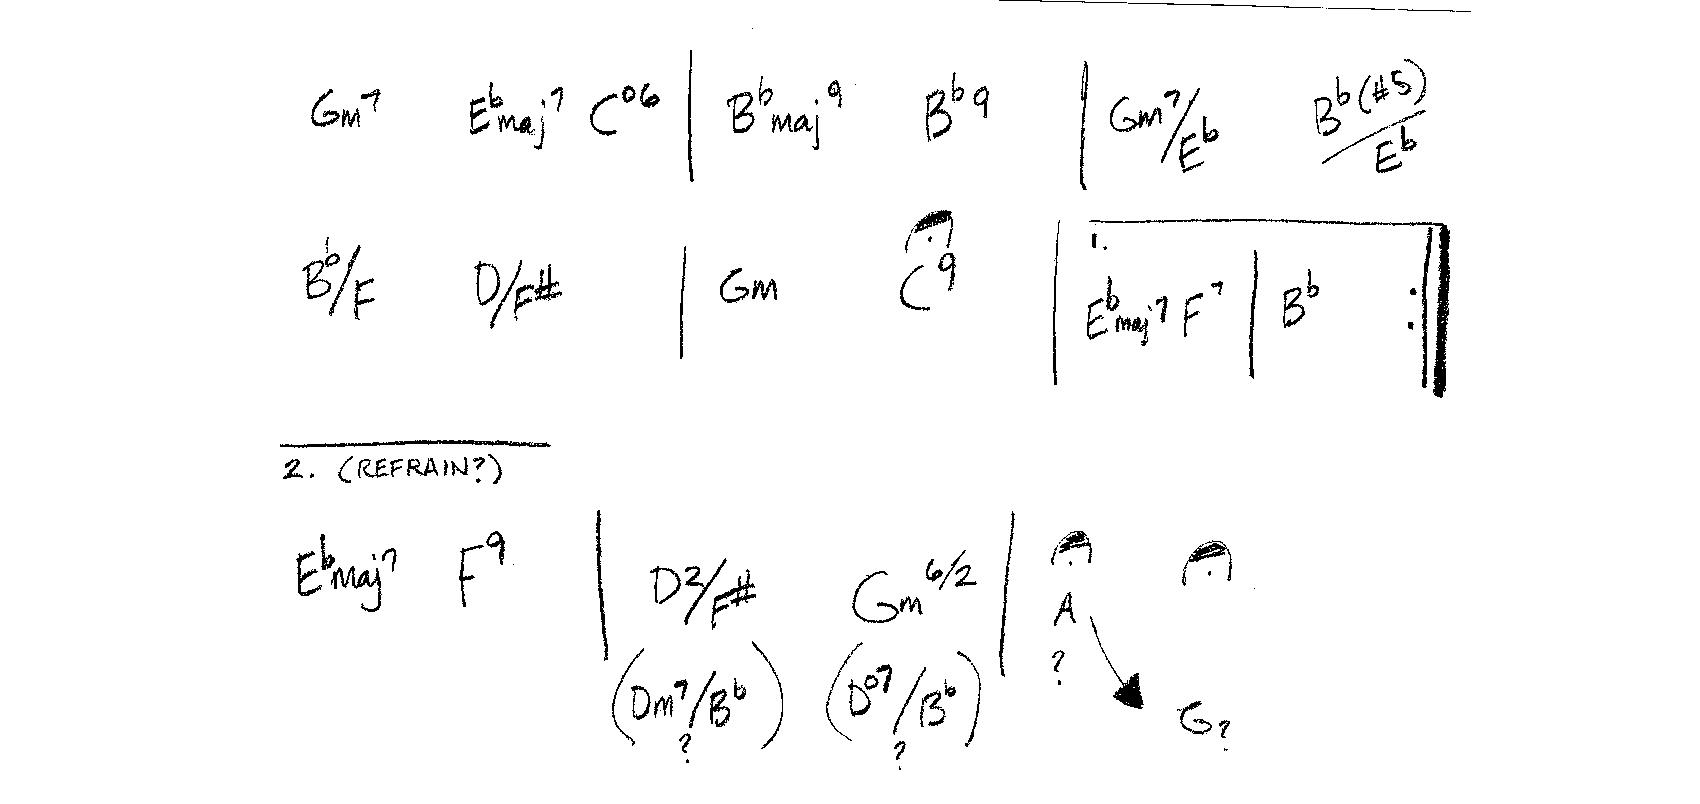 Gm7 E♭maj7 C°6 | B♭maj9 B♭9 | Gm7/E♭ B♭(#5)/E♭
B♭/F D/F# | Gm C9 | 1. E♭maj7 F7 | B♭ :||
2. (REFRAIN?)
E♭maj7 F9 | D2/F# Gm6/2 | A
(Dm7/B♭ ?) (D°7/B♭ ?) ? G?